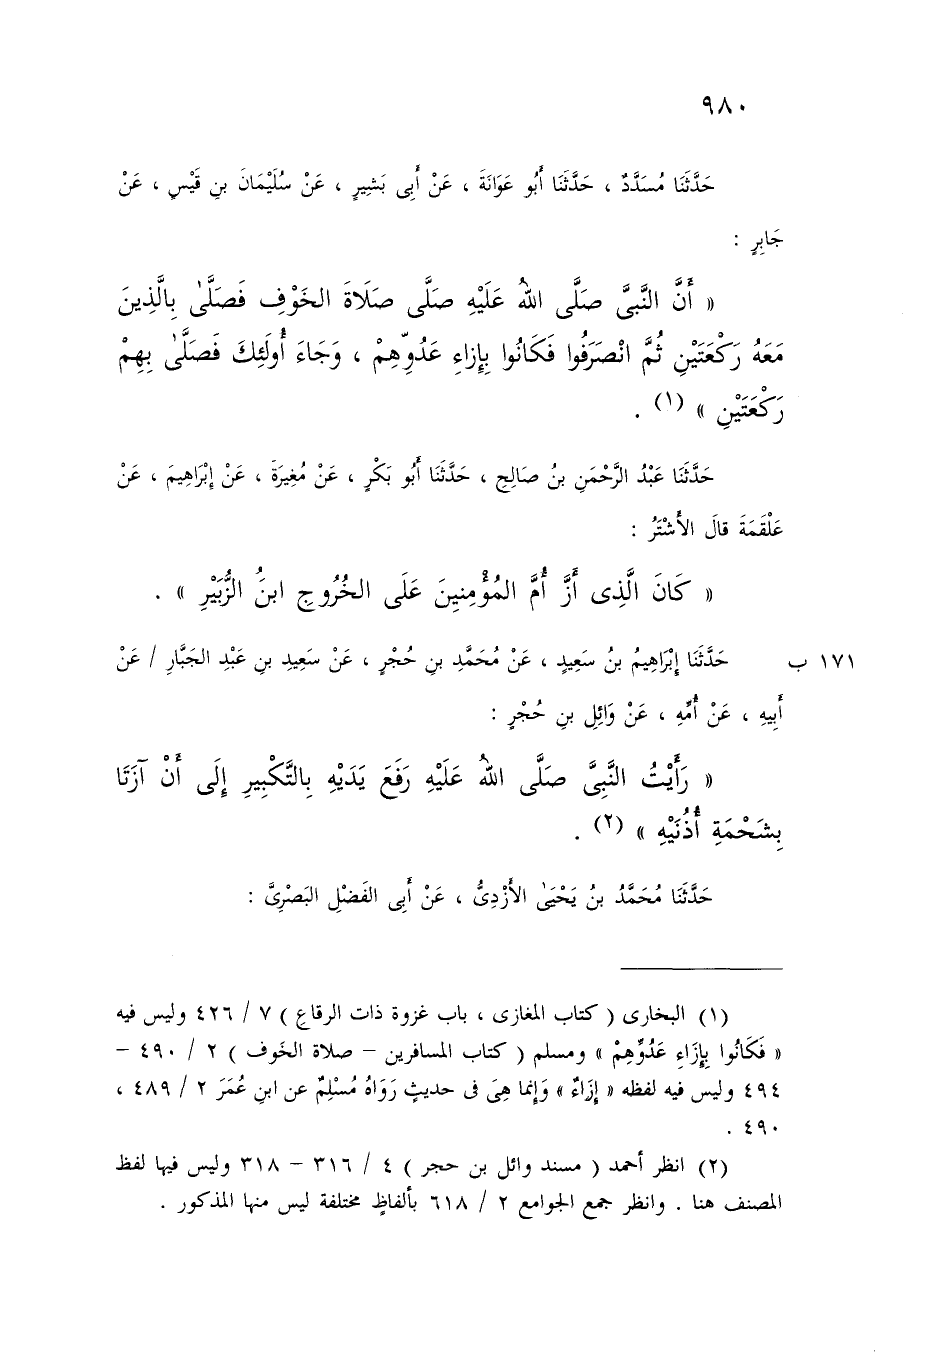 ٩٨٠
حَدَّثَنَا مُسَدَّدٌ ، حَدَّثَنَا أَبُو عَوَانَةَ ، عَنْ أَبِى بَشِيرٍ ، عَنْ سُلَيْمَانَ بنِ قَيْسٍ ، عَنْ
جَابِرٍ :
« أَنَّ النَّبِىَّ صَلَّى اللهُ عَلَيْهِ صَلَّى صَلَاةَ الخَوْفِ فَصَلَّىٰ بِالَّذِينَ
مَعَهُ رَكْعَتَيْنِ ثُمَّ انْصَرَفُوا فَكَانُوا بِإِزاءِ عَدُوِّهِمْ ، وَجَاءَ أُولَئِكَ فَصَلَّىٰ بِهِمْ
رَكْعَتَيْنِ » (١) .
حَدَّثَنَا عَبْدُ الرَّحْمَنِ بنُ صَالِحٍ ، حَدَّثَنَا أَبُو بَكْرٍ ، عَنْ مُغِيرَةَ ، عَنْ إِبْرَاهِيمَ ، عَنْ
عَلْقَمَةَ قالَ الأَشْتَرُ :
« كَانَ الَّذِى أَزَّ أُمَّ المُؤْمِنِينَ عَلَى الخُرُوجِ ابنُ الزُّبَيْرِ » .
١٧١ ب حَدَّثَنَا إِبْرَاهِيمُ بنُ سَعِيدٍ ، عَنْ مُحَمَّدِ بنِ حُجْرٍ ، عَنْ سَعِيدِ بنِ عَبْدِ الجَبَّارِ / عَنْ
أَبِيهِ ، عَنْ أُمِّهِ ، عَنْ وَائِلِ بنِ حُجْرٍ :
« رَأَيْتُ النَّبِىَّ صَلَّى اللهُ عَلَيْهِ رَفَعَ يَدَيْهِ بِالتَّكْبِيرِ إِلَى أَنْ آزَتَا
بِشَحْمَةِ أُذُنَيْهِ » (٢) .
حَدَّثَنَا مُحَمَّدُ بنُ يَحْيَىٰ الأَزْدِىُّ ، عَنْ أَبِى الفَضْلِ البَصْرِىِّ :
(١) البخارى ( كتاب المغازى ، باب غزوة ذات الرقاع ) ٧ / ٤٢٦ وليس فيه
« فَكَانُوا بِإِزَاءِ عَدُوِّهِمْ » ومسلم ( كتاب المسافرين – صلاة الخَوف ) ٢ / ٤٩٠ –
٤٩٤ وليس فيه لفظه « إِزَاءٌ » وَإِنما هِىَ فى حديثٍ رَوَاهُ مُسْلِمٌ عن ابنِ عُمَرَ ٢ / ٤٨٩ ،
٤٩٠ .
(٢) انظر أحمد ( مسند وائل بن حجر ) ٤ / ٣١٦ – ٣١٨ وليس فيها لفظ
المصنف هنا . وانظر جمع الجوامع ٢ / ٦١٨ بألفاظٍ مختلفة ليس منها المذكور .